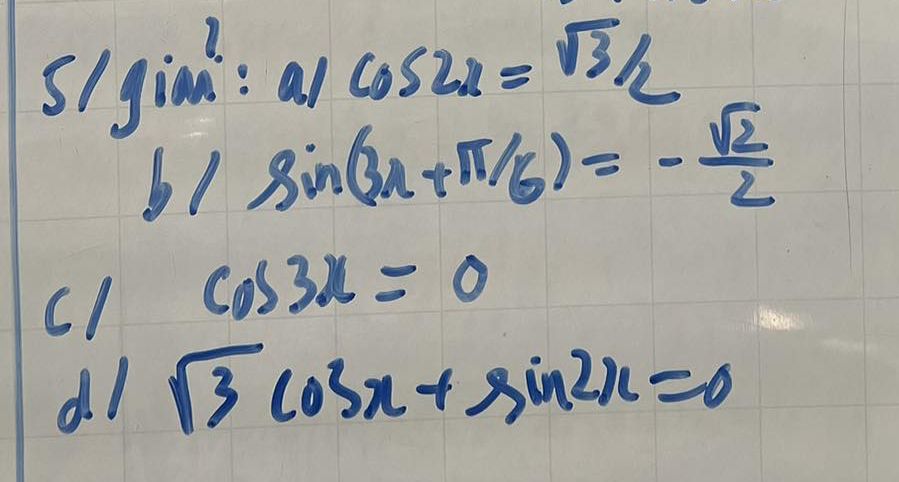 5/ giải: a/ cos2x = √3/2
b/ sin(3x + π/6) = - √2/2
c/ cos3x = 0
d/ √3 cosx + sin2x = 0